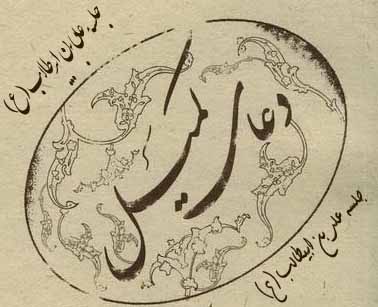 جلسه علی بن ابیطالب (ع)
دعای کمیل
جلسه علی بن ابیطالب (ع)